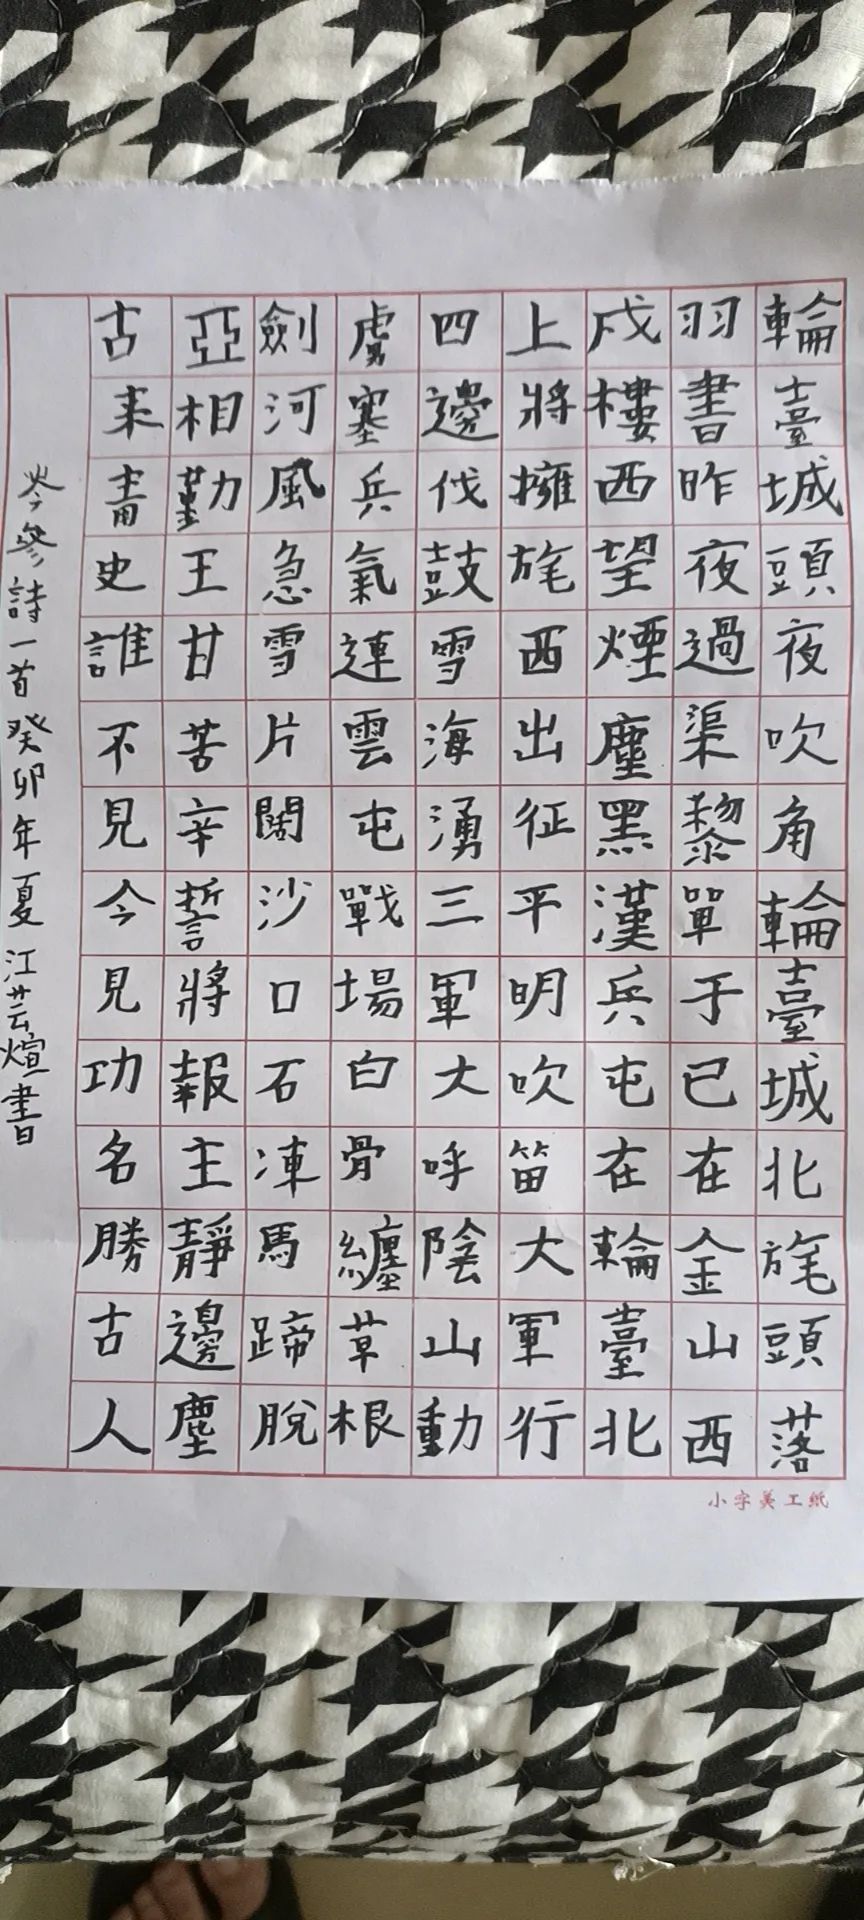 輪臺城頭夜吹角輪臺城北旄頭落
羽書昨夜過渠黎單于已在金山西
戍樓西望煙塵黑漢兵屯在輪臺北
上將擁旄西出征平明吹笛大軍行
四邊伐鼓雪海湧三軍大呼陰山動
虜塞兵氣連雲屯戰場白骨纏草根
劍河風急雪片闊沙口石凍馬蹄脫
亞相勤王甘苦辛誓將報主靜邊塵
古来青史誰不見今見功名勝古人
岑參詩一首癸卯年夏江芸煊書
小字美工紙